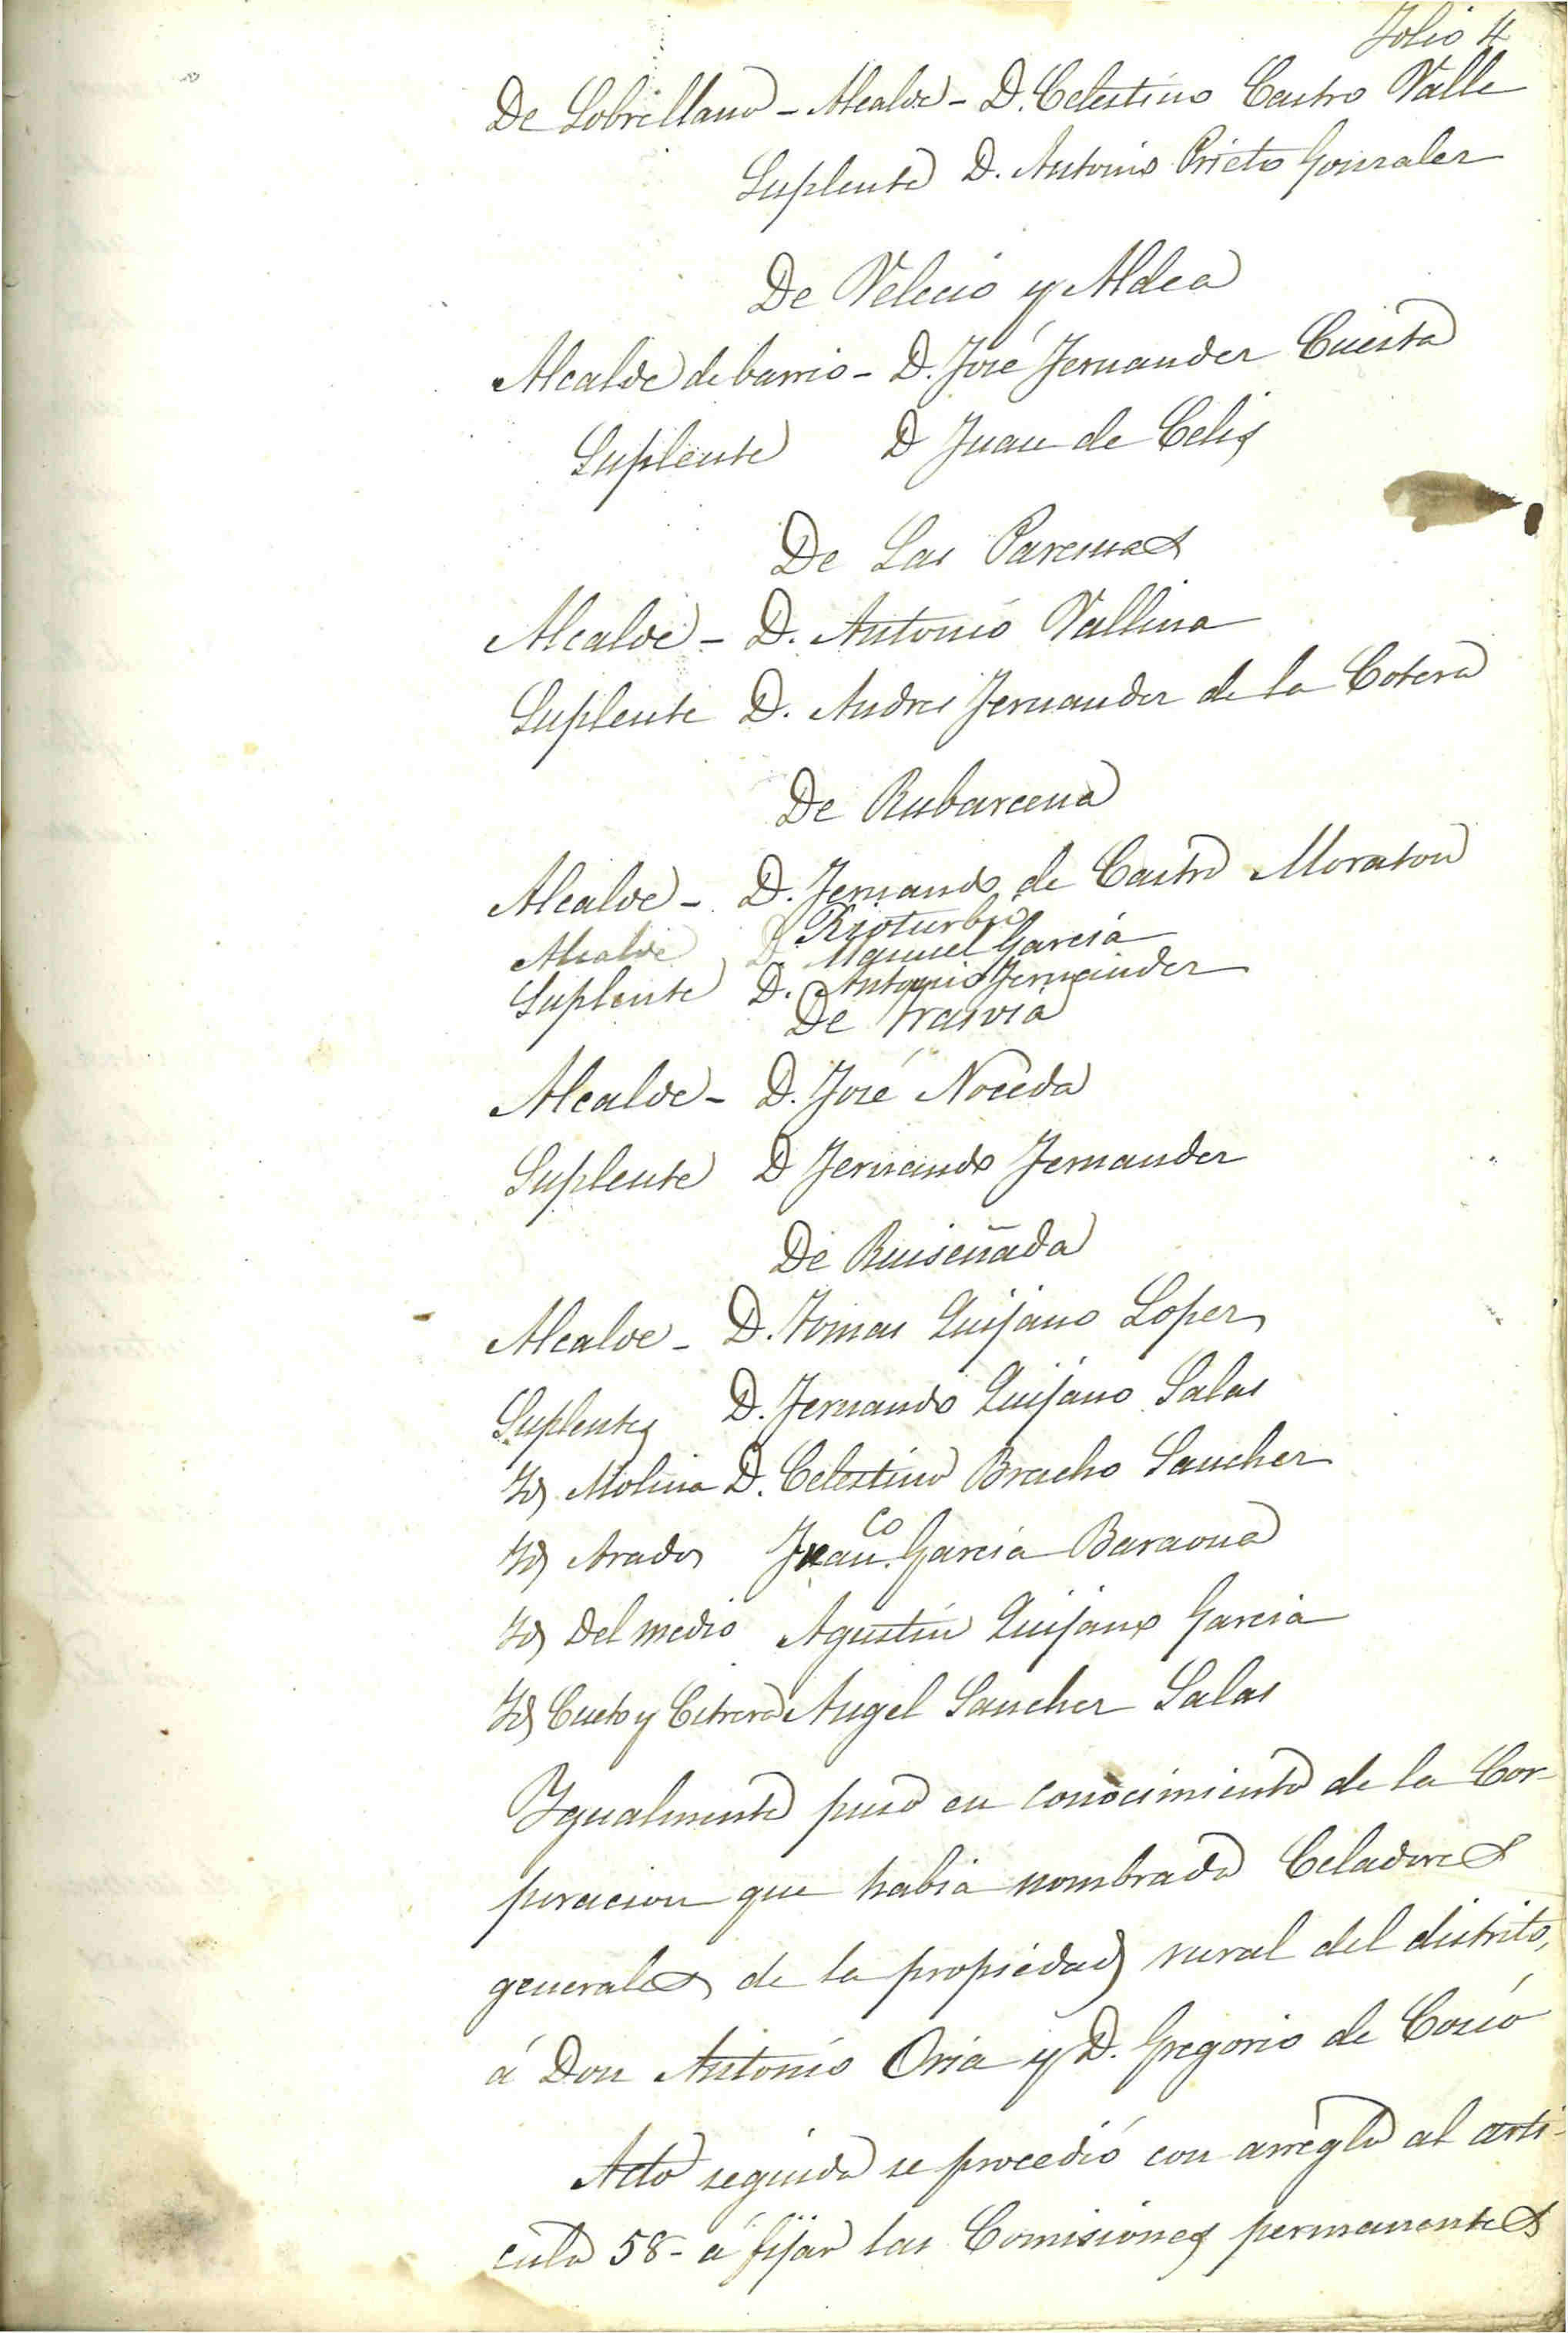 Folio 4
De Sobrellano - Alcalde - D. Celestino Castro Valle
Suplente D. Antonio Prieto Gonzalez
De Velecio y Aldea
Alcalde de barrio - D. José Fernandez Cuesta
Suplente D Juan de Celis
De Las Parcenas
Alcalde - D. Antonio Vallina
Suplente D. Andres Fernandez de la Cotera
De Rubarcena
Alcalde - D. Fernando de Castro Moraton
Rioturbio
Alcalde D. Manuel Garcia
Suplente D. Antonio Fernandez
De Trasvia
Alcalde - D. José Noceda
Suplente D Fernando Fernandez
De Ruiseñada
Alcalde - D. Tomas Quijano Lopez
Suplentes D. Fernando Quijano Salas
Id Molina D. Celestino Bracho Sanchez
Id Arados Franco. Garcia Baraona
Id Del medio Agustin Quijano Garcia
Id Cueto y Citrera Angel Sanchez Salas
Ygualmente puso en conocimiento de la Cor-
poracion que habia nombrado Celadores
generales de la propiedad rural del distrito,
á Don Antonio Oria y D. Gregorio de Cosio
Acto seguido se procedió con arreglo al arti-
culo 58- á fijar las Comisiones permanentes